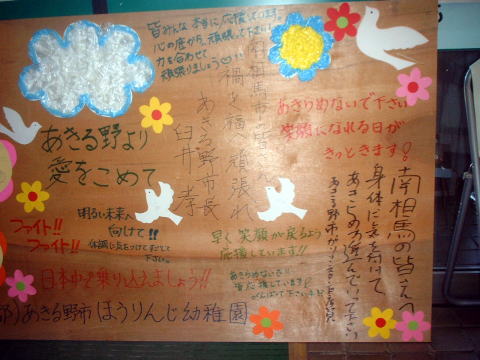 皆みんな 本当に応援してます。
心の底から、頑張って下さい
力を合わせて
頑張りましょう
南相馬市の皆さん
禍を福に 頑張れ
あきる野市長
臼井 孝
あきらめないで下さい
笑顔になれる日が
きっときます!
あきる野より
愛をこめて
南相馬の皆さんへ
身体に気を付けて
ファイト!!
ファイト!!
明るい未来へ
向けて!!
体調に気をつけてすごして
下さい。
早く笑顔が戻るよう
応援しています!!
あきらめないで!!
皆応援しています!
がんばって下さい
日本中で乗り込えましょう!!
あきる野市 ほうりんじ幼稚園